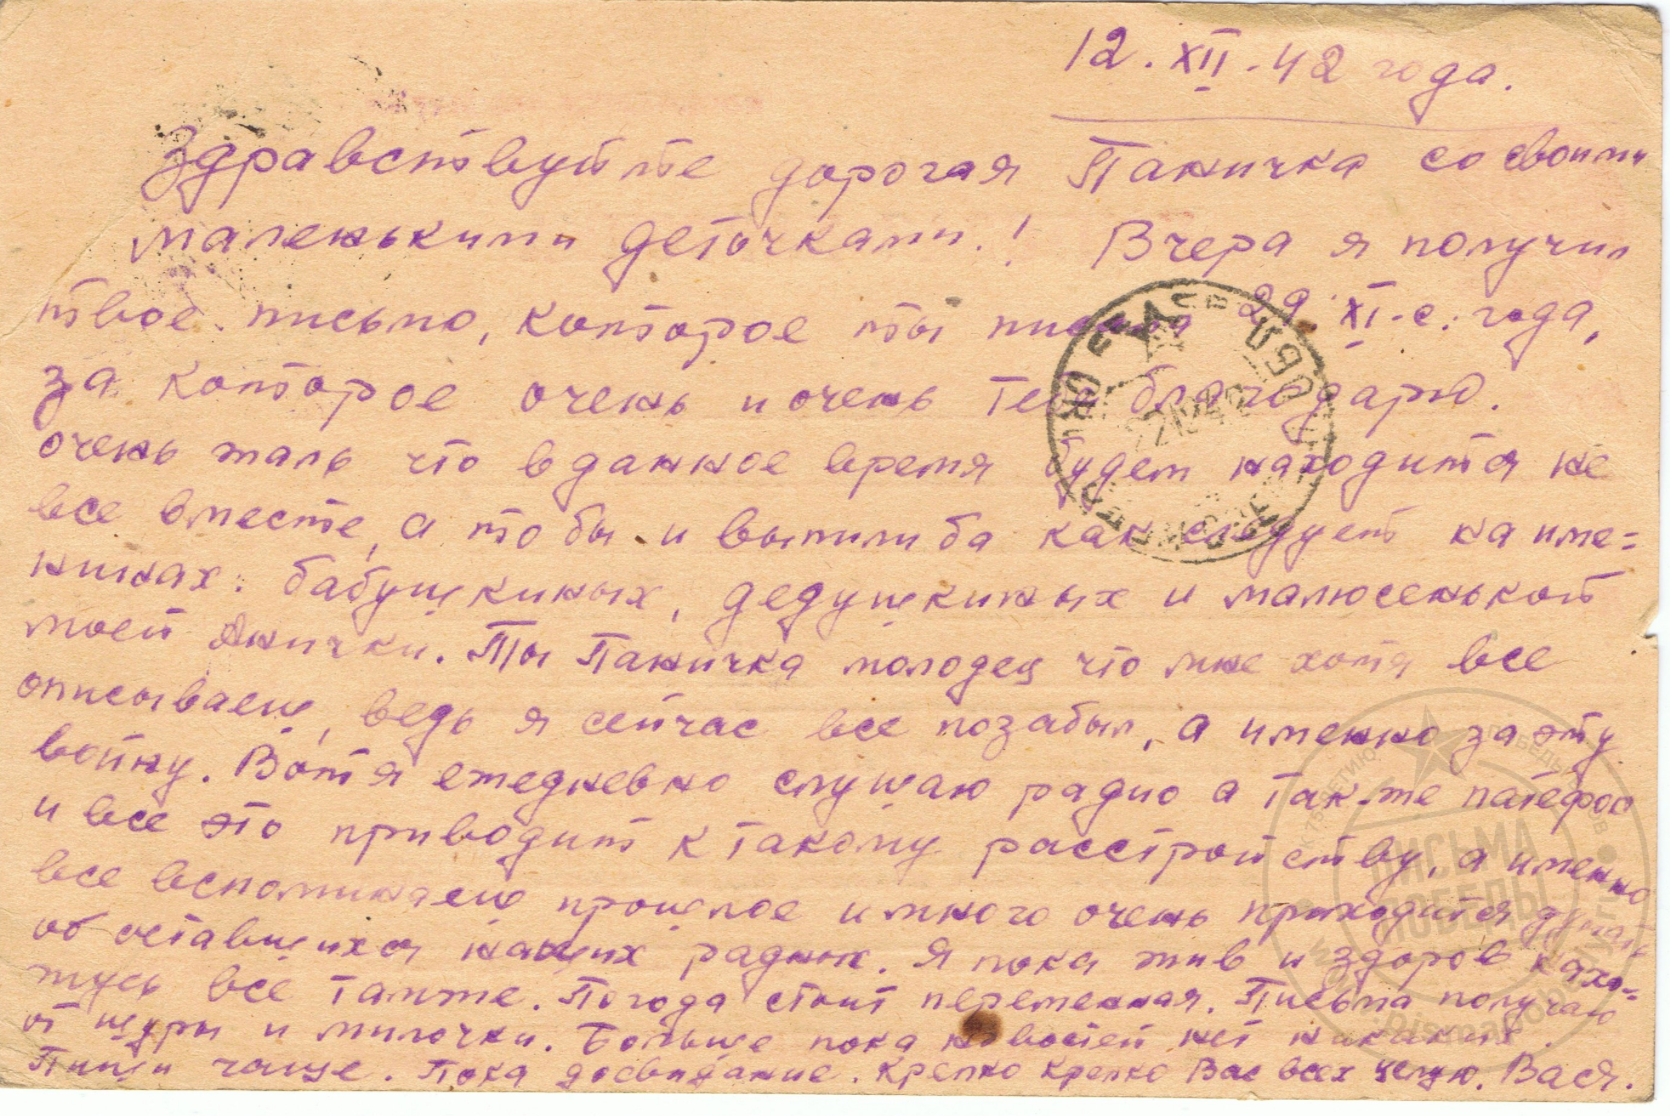 12. XII - 42 года.
Здравствуйте дорогая Паничка со своими
маленькими деточками.! Вчера я получил
твое письмо, которое ты писала 29. XI - с. года,
за которое очень и очень тебя благодарю.
очень жаль что в данное время будем находится не
все вместе, а то бы и выпили ба как следует на име=
нинах: бабушкиных, дедушкиных и малюсенькой
моей Анички. Ты Паничка молодец что мне хотя все
описываеш, ведь я сейчас все позабыл, а именно за эту
войну. Вот я ежедневно слушаю радио а так-же патефон
и все это приводит к такому расстройству, а именно
все вспоминаеш прошлое и много очень приходится думать
об оставшихся наших радных. Я пока жив и здоров нахо=
жусь все там же. Погода стоит переменная. Письма получаю
от шуры и милочки. Больше пока новостей нет никаких.
Пиши чаще. Пока досвидание. Крепко Крепко Вас всех целую. Вася.
ПИСЬМА
ПОБЕДЫ